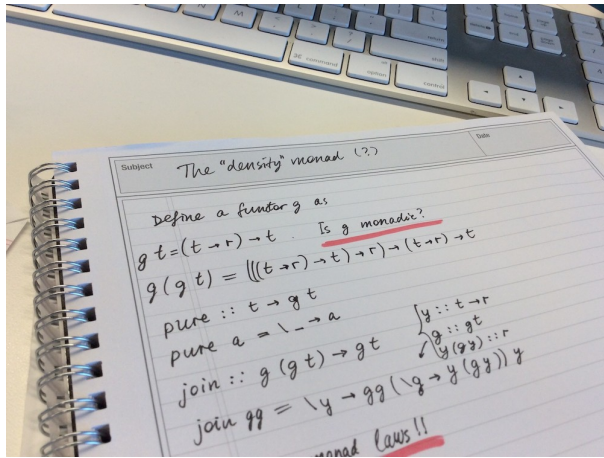 command
option
control
shift
Subject
The "density" monad (?)
Date
Define a functor g as
g t = (t → r) → t . Is g monadic?
g (g t) = (((t → r) → t) → r) → (t → r) → t
pure :: t → g t
pure a = \ _ → a
join :: g (g t) → g t
y :: t → r
g :: g t
y (g y) :: r
join gg = \ y → gg (\ g → y (g y)) y
monad laws!!